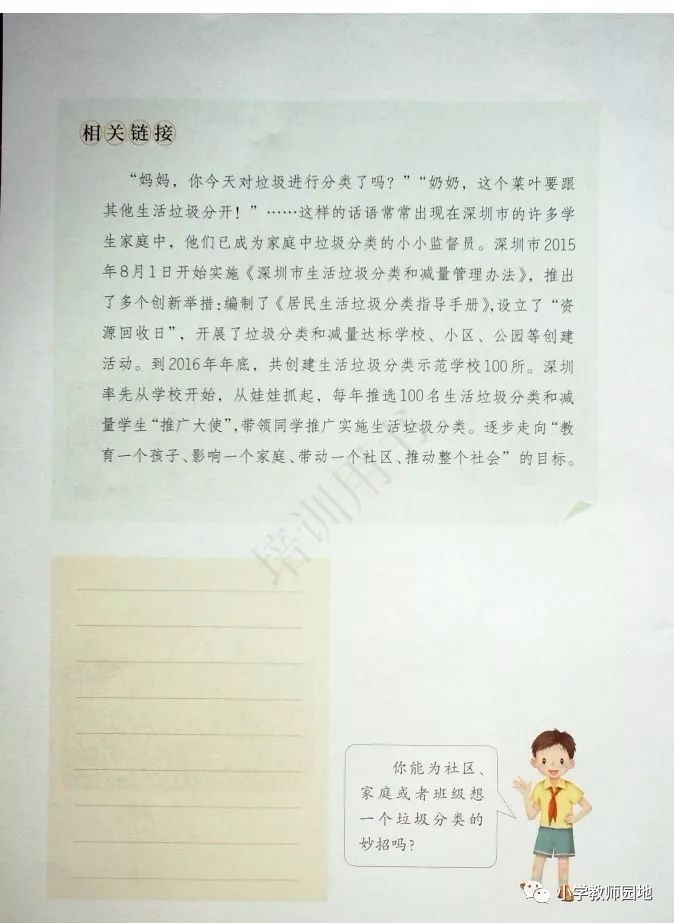 相关链接
“妈妈，你今天对垃圾进行分类了吗？”“奶奶，这个菜叶要跟
其他生活垃圾分开！”……这样的话语常常出现在深圳市的许多学
生家庭中，他们已成为家庭中垃圾分类的小小监督员。深圳市2015
年8月1日开始实施《深圳市生活垃圾分类和减量管理办法》，推出
了多个创新举措：编制了《居民生活垃圾分类指导手册》，设立了“资
源回收日”，开展了垃圾分类和减量达标学校、小区、公园等创建
活动。到2016年年底，共创建生活垃圾分类示范学校100所。深圳
率先从学校开始，从娃娃抓起，每年推选100名生活垃圾分类和减
量学生“推广大使”，带领同学推广实施生活垃圾分类。逐步走向“教
育一个孩子、影响一个家庭、带动一个社区、推动整个社会”的目标。
培训用书
你能为社区、
家庭或者班级想
一个垃圾分类的
妙招吗？
小学教师园地